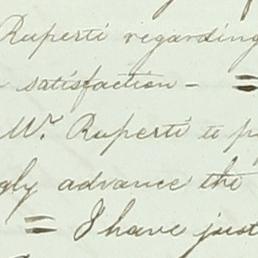 Ruperti regarding
satisfaction - =
Mr. Ruperti to p
gly advance the
= I have just